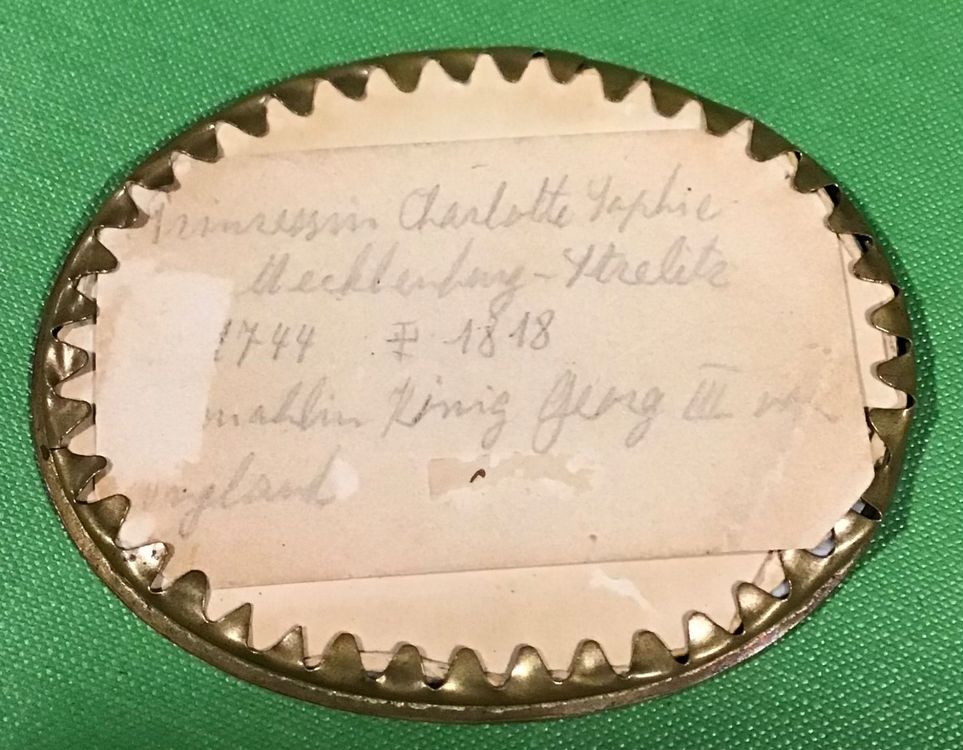 Prinzessin Charlotte Sophie
Mecklenburg-Strelitz
1744 ‡ 1818
mahlin König Georg III von
England